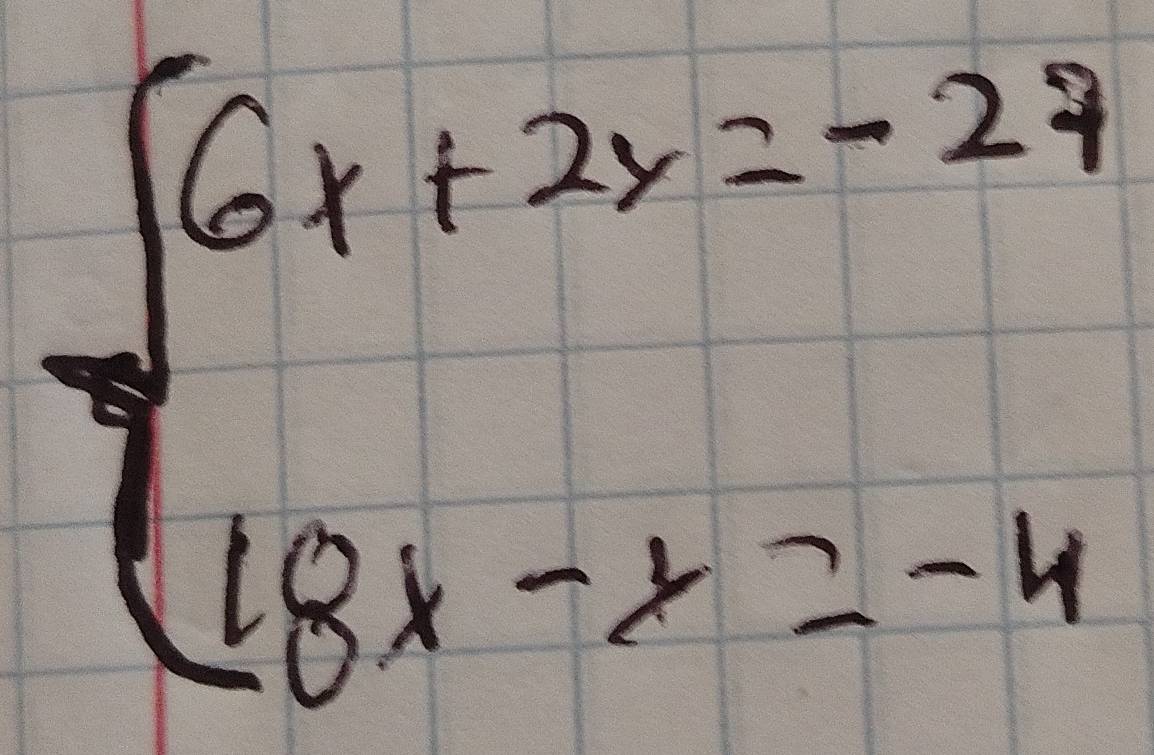 6x + 2y = -24
18x - y = -4